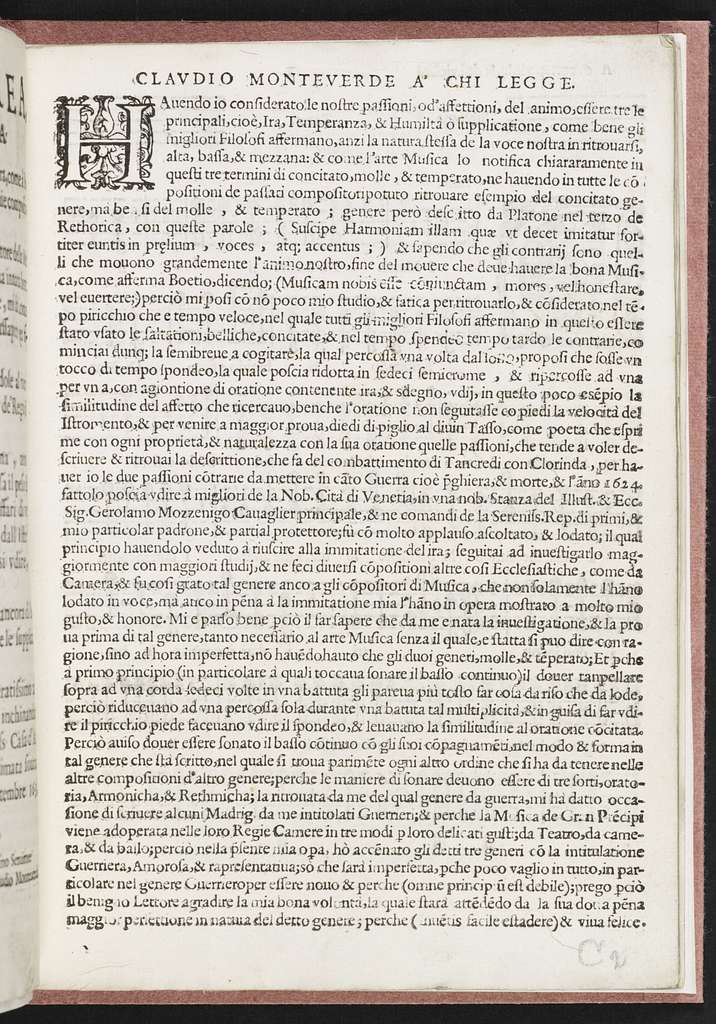 CLAVDIO MONTEVERDE A' CHI LEGGE.
HAuendo io considerato le nostre passioni, od'affettioni, del animo, essere tre le
principali, cioè, Ira, Temperanza, & Humiltà ò supplicatione, come bene gli
migliori Filosofi affermano, anzi la natura stessa de la voce nostra in ritrouarsi,
alta, bassa, & mezzana: & come l'arte Musica lo notifica chiararamente in
questi tre termini di concitato, molle, & temperato, ne hauendo in tutte le cō
positioni de passati compositori potuto ritrouare esempio del concitato ge-
nere, ma ben si del molle, & temperato; genere però descritto da Platone nel terzo de
Rethorica, con queste parole; (Suscipe Harmoniam illam quæ vt decet imitatur for-
titer euntis in prælium, voces, atq; accentus;) & sapendo che gli contrarij sono quel-
li che mouono grandemente l'animo nostro, fine del mouere che deue hauere la bona Musi-
ca, come afferma Boetio, dicendo; (Musicam nobis esse cōniunctam, mores, vel honestare,
vel euertere;) perciò mi posi cō nō poco mio studio, & fatica per ritrouarlo, & cōsiderato nel tē-
po piricchio che e tempo veloce, nel quale tutti gli migliori Filosofi affermano in questo essere
stato vsato le saltationi, belliche, concitate, & nel tempo spondeo tempo tardo le contrarie, co
minciai dunq; la semibreue a cogitare, la qual percossa vna volta dal sono, proposi che fosse vn
tocco di tempo spondeo, la quale poscia ridotta in sedeci semicrome, & ripercosse ad vna
per vna, con agiontione di oratione contenente ira, & sdegno, vdij, in questo poco esēpio la
similitudine del affetto che ricercauo, benche l'oratione non seguitasse co piedi la velocità del
Istromento, & per venire a maggior proua, diedi di piglio al diuin Tasso, come poeta che espri
me con ogni proprietà, & naturalezza con la sua oratione quelle passioni, che tende a voler de-
scriuere & ritrouai la descrittione, che fa del combattimento di Tancredi con Clorinda, per ha-
uer io le due passioni cōtrarie da mettere in cāto Guerra cioè p̄ghiera, & morte, & l'āno 1624.
fattolo poscia vdire à migliori de la Nob. Città di Venetia, in vna nob. Stanza del Illust. & Ecc.
Sig. Gerolamo Mozzenigo Cauaglier principale, & ne comandi de la Sereniss. Rep. di primi, &
mio particolar padrone, & partial protettore; fù cō molto applauso ascoltato, & lodato; il qual
principio hauendolo veduto à riuscire alla immitatione del ira; seguitai ad inuestigarlo mag-
giormente con maggiori studij, & ne feci diuersi cōpositioni altre cosi Ecclesiastiche, come da
Camera, & fu cosi grato tal genere anco a gli cōpositori di Musica, che non solamente l'hāno
lodato in voce, ma anco in pēna à la immitatione mia l'hāno in opera mostrato a molto mio
gusto, & honore. Mi e parso bene pciò il far sapere che da me e nata la inuestigatione, & la pro
ua prima di tal genere, tanto necessario al arte Musica senza il quale, e statta si può dire con ra-
gione, sino ad hora imperfetta, nō hauēdo hauto che gli duoi generi, molle, & tēperato; Et pche
à primo principio (in particolare à quali toccaua sonare il basso continuo) il douer tanpellare
sopra ad vna corda sedeci volte in vna battuta gli pareua più tosto far cosa da riso che da lode,
perciò riduceuano ad vna percossa sola durante vna battuta tal multiplicità, & in guisa di far vdi-
re il piricchio piede faceuano vdire il spondeo, & leuauano la similitudine al oratione cōcitata.
Perciò auiso douer essere sonato il basso cōtinuo cō gli suoi cōpagnamēti, nel modo & forma in
tal genere che stà scritto, nel quale si troua parimēte ogni altro ordine che si ha da tenere nelle
altre compositioni d'altro genere; perche le maniere di sonare deuono essere di tre sorti, orato-
ria, Armonicha, & Rethmicha; la ritrouata da me del qual genere da guerra, mi hà datto occa-
sione di scriuere alcuni Madrig. da me intitolati Guerrieri; & perche la Musica de Gran Prēcipi
viene adoperata nelle loro Regie Camere in tre modi p loro delicati gusti; da Teatro, da came-
ra, & da ballo; perciò nella p̄sente mia opa, hò accēnato gli detti tre generi cō la intitulatione
Guerriera, Amorosa, & rapresentatiua; sò che sarà imperfetta, pche poco vaglio in tutto, in par-
ticolare nel genere Guerriero per essere nouo & perche (omne principiū est debile); prego pciò
il benigno Lettore agradire la mia bona volontà, la quale starà attēdēdo da la sua dotta pēna
maggior perfettione in natura del detto genere; perche (Inuētis facile est adere) & viua felice.
C 2